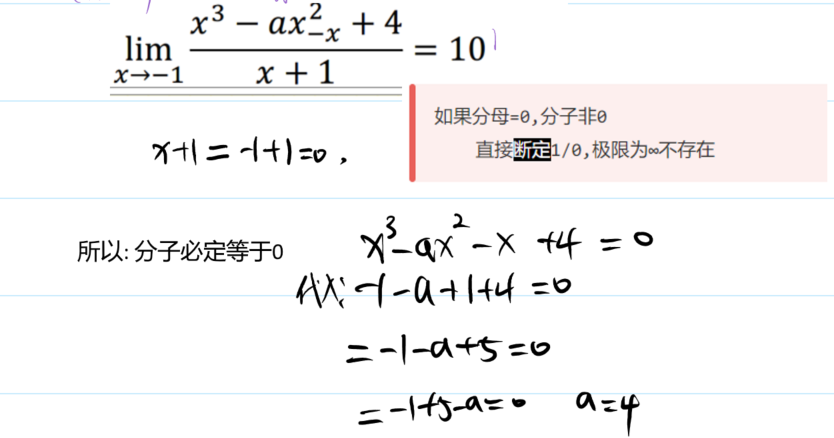 lim x→-1 (x³ − ax²₋ₓ + 4)/(x + 1) = 10
如果分母=0,分子非0
直接断定1/0,极限为∞不存在
x+1=-1+1=0,
所以: 分子必定等于0
x³-ax²-x+4=0
代入: -1-a+1+4=0
=-1-a+5=0
=-1+5-a=0 a=4